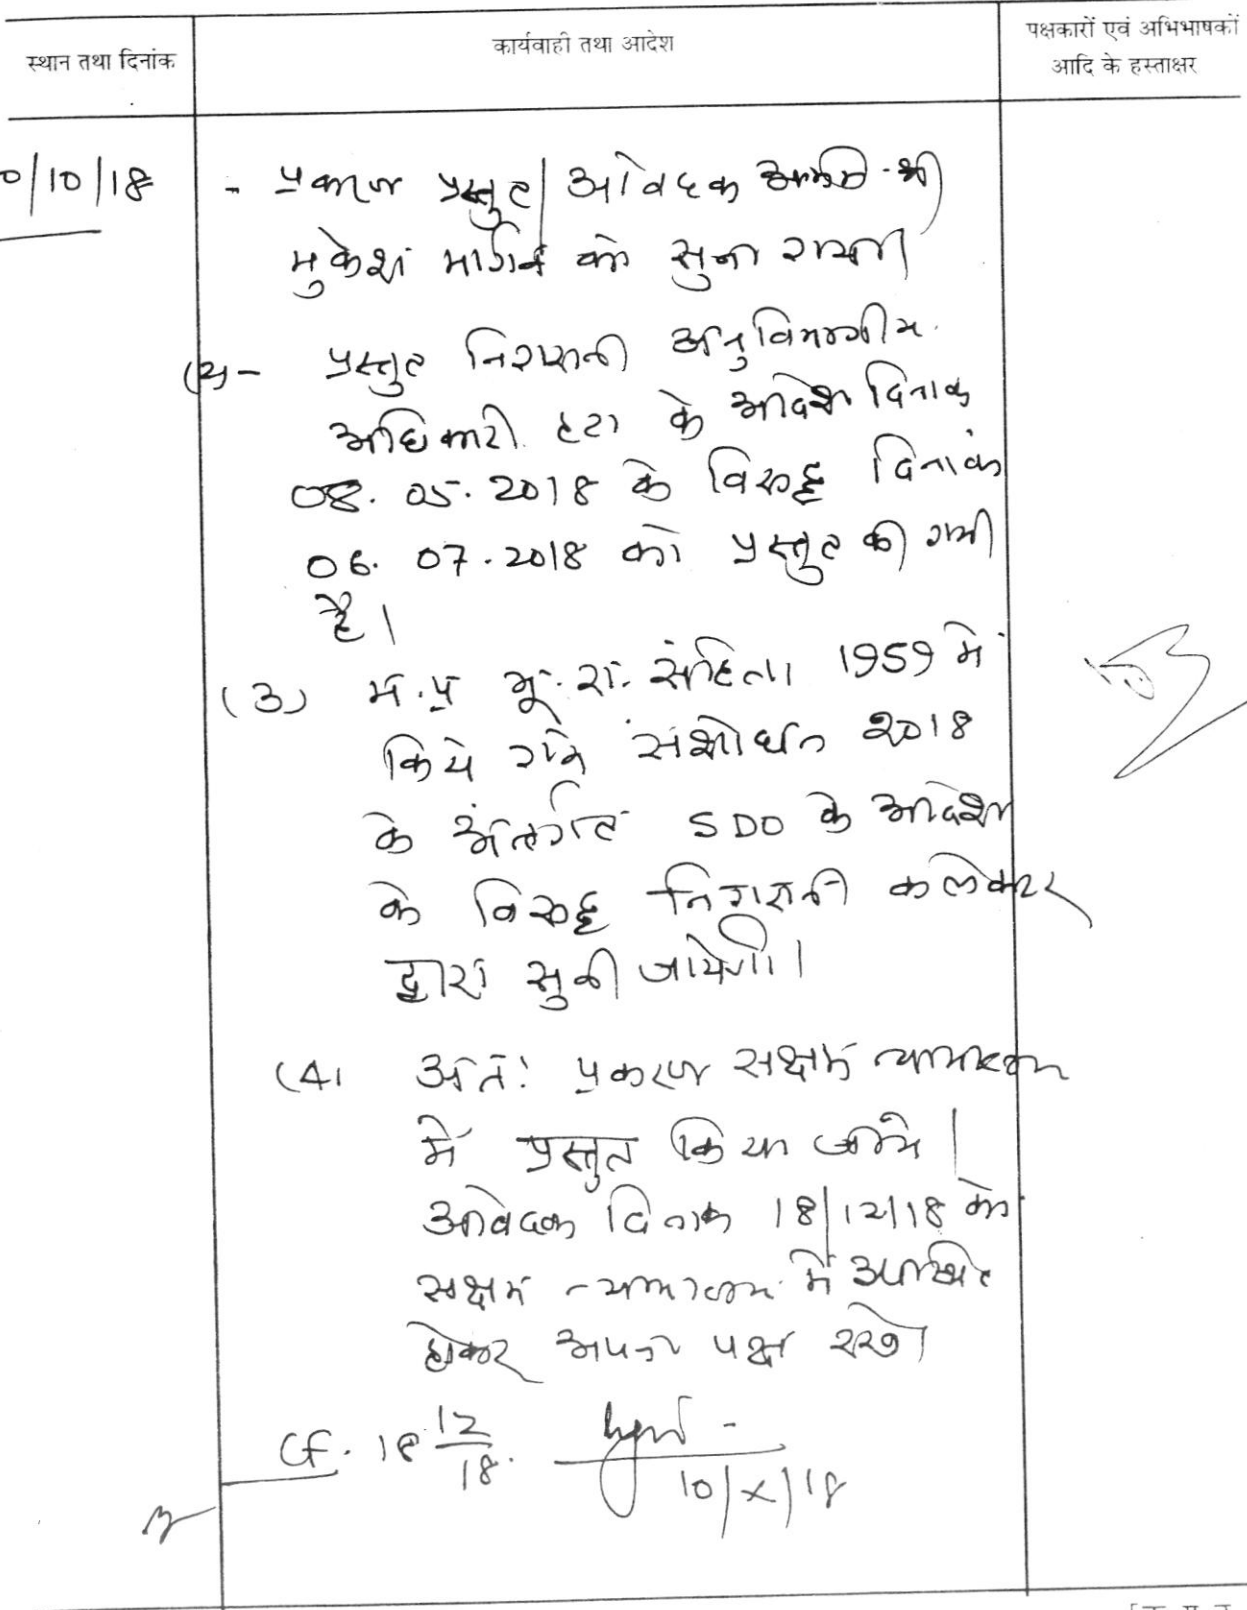 स्थान तथा दिनांक
कार्यवाही तथा आदेश
पक्षकारों एवं अभिभाषकों
आदि के हस्ताक्षर
0/10/18
- प्रकरण प्रस्तुत| आवेदक अभि. श्री
मुकेश भार्गव को सुना गया|
(2)- प्रस्तुत निगरानी अनुविभागीय
अधिकारी हटा के आदेश दिनांक
08.05.2018 के विरुद्ध दिनांक
06.07.2018 को प्रस्तुत की गयी
है।
(3) म.प्र भू.रा. संहिता 1959 में
किये गये संशोधन 2018
के अंतर्गत SDO के आदेश
के विरुद्ध निगरानी कलेक्टर
द्वारा सुनी जायेगी।
(4) अतः प्रकरण सक्षम न्यायालय
में प्रस्तुत किया जाये।
आवेदक दिनांक 18/12/18 को
सक्षम न्यायालय में उपस्थित
होकर अपना पक्ष रखे।
CF. 18 12/18.
10/X/18